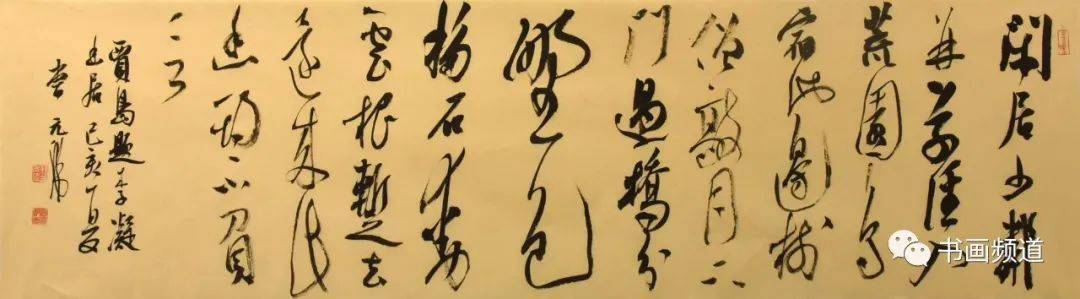 閑居少鄰
并草徑入
荒園鳥
宿池邊樹
僧敲月下
門過橋分
野色
移石動
雲根暫去
還来此
幽期不負
言
賈島題李凝
幽居 己亥
元
书画频道